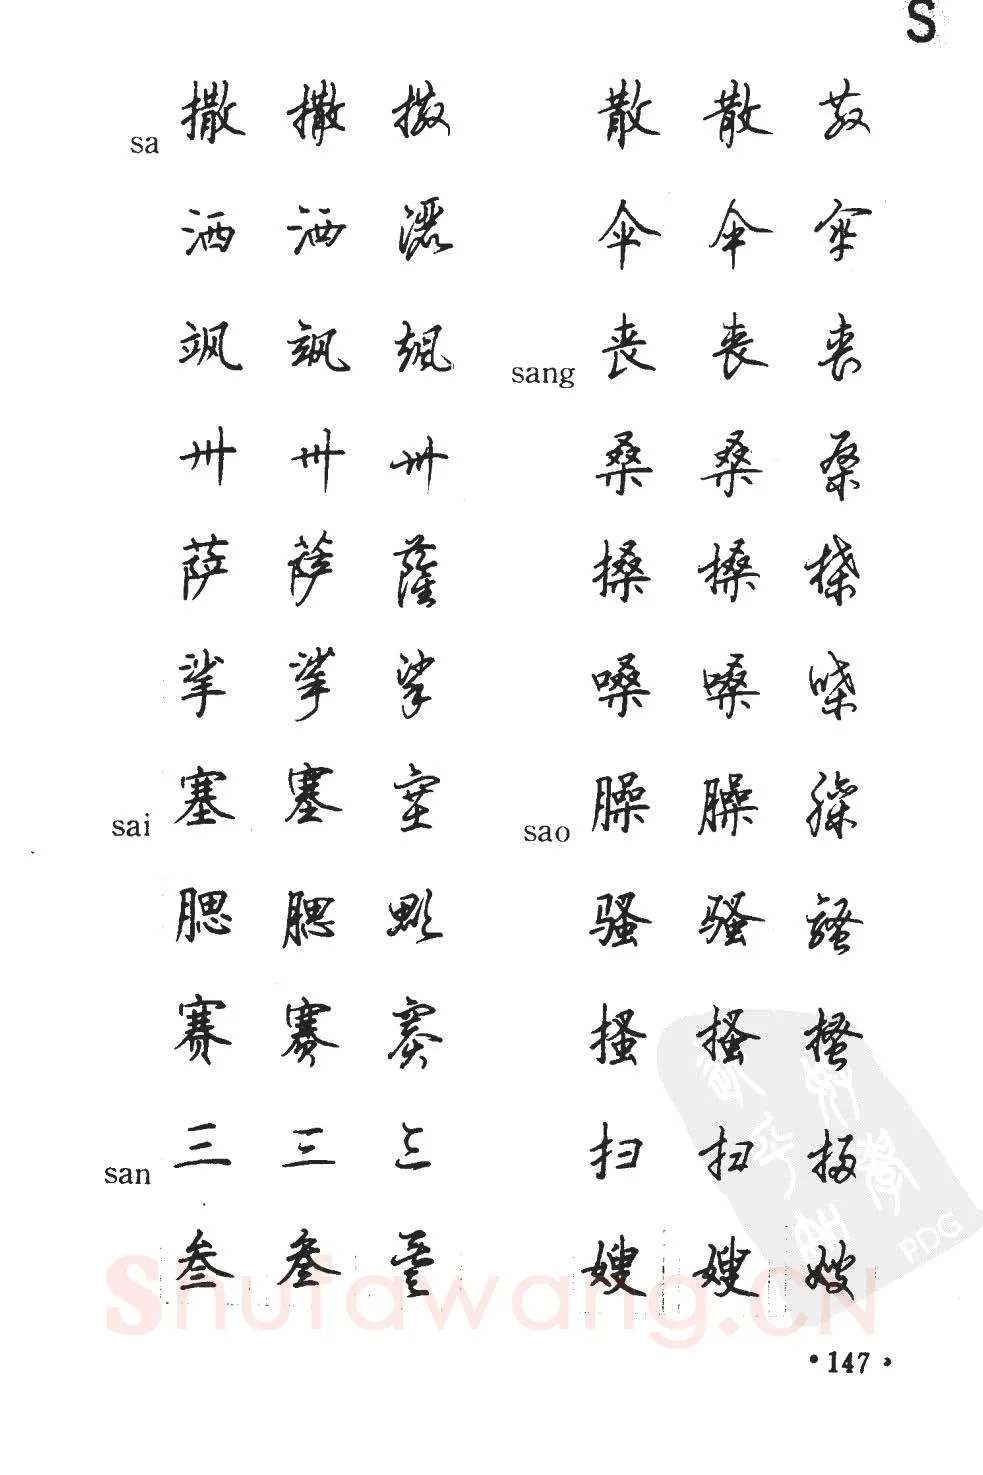 S
sa 撒 撒 撒
洒 洒 灑
飒 飒 飒
卅 卅 卅
萨 萨 薩
挲 挲 挲
sai 塞 塞 塞
腮 腮 腮
赛 赛 赛
san 三 三 三
叁 叁 叁
散 散 散
伞 伞 伞
sang 丧 丧 丧
桑 桑 桑
搡 搡 搡
嗓 嗓 嗓
sao 臊 臊 臊
骚 骚 骚
搔 搔 搔
扫 扫 扫
嫂 嫂 嫂
Shufawang.CN
PDG
·147·